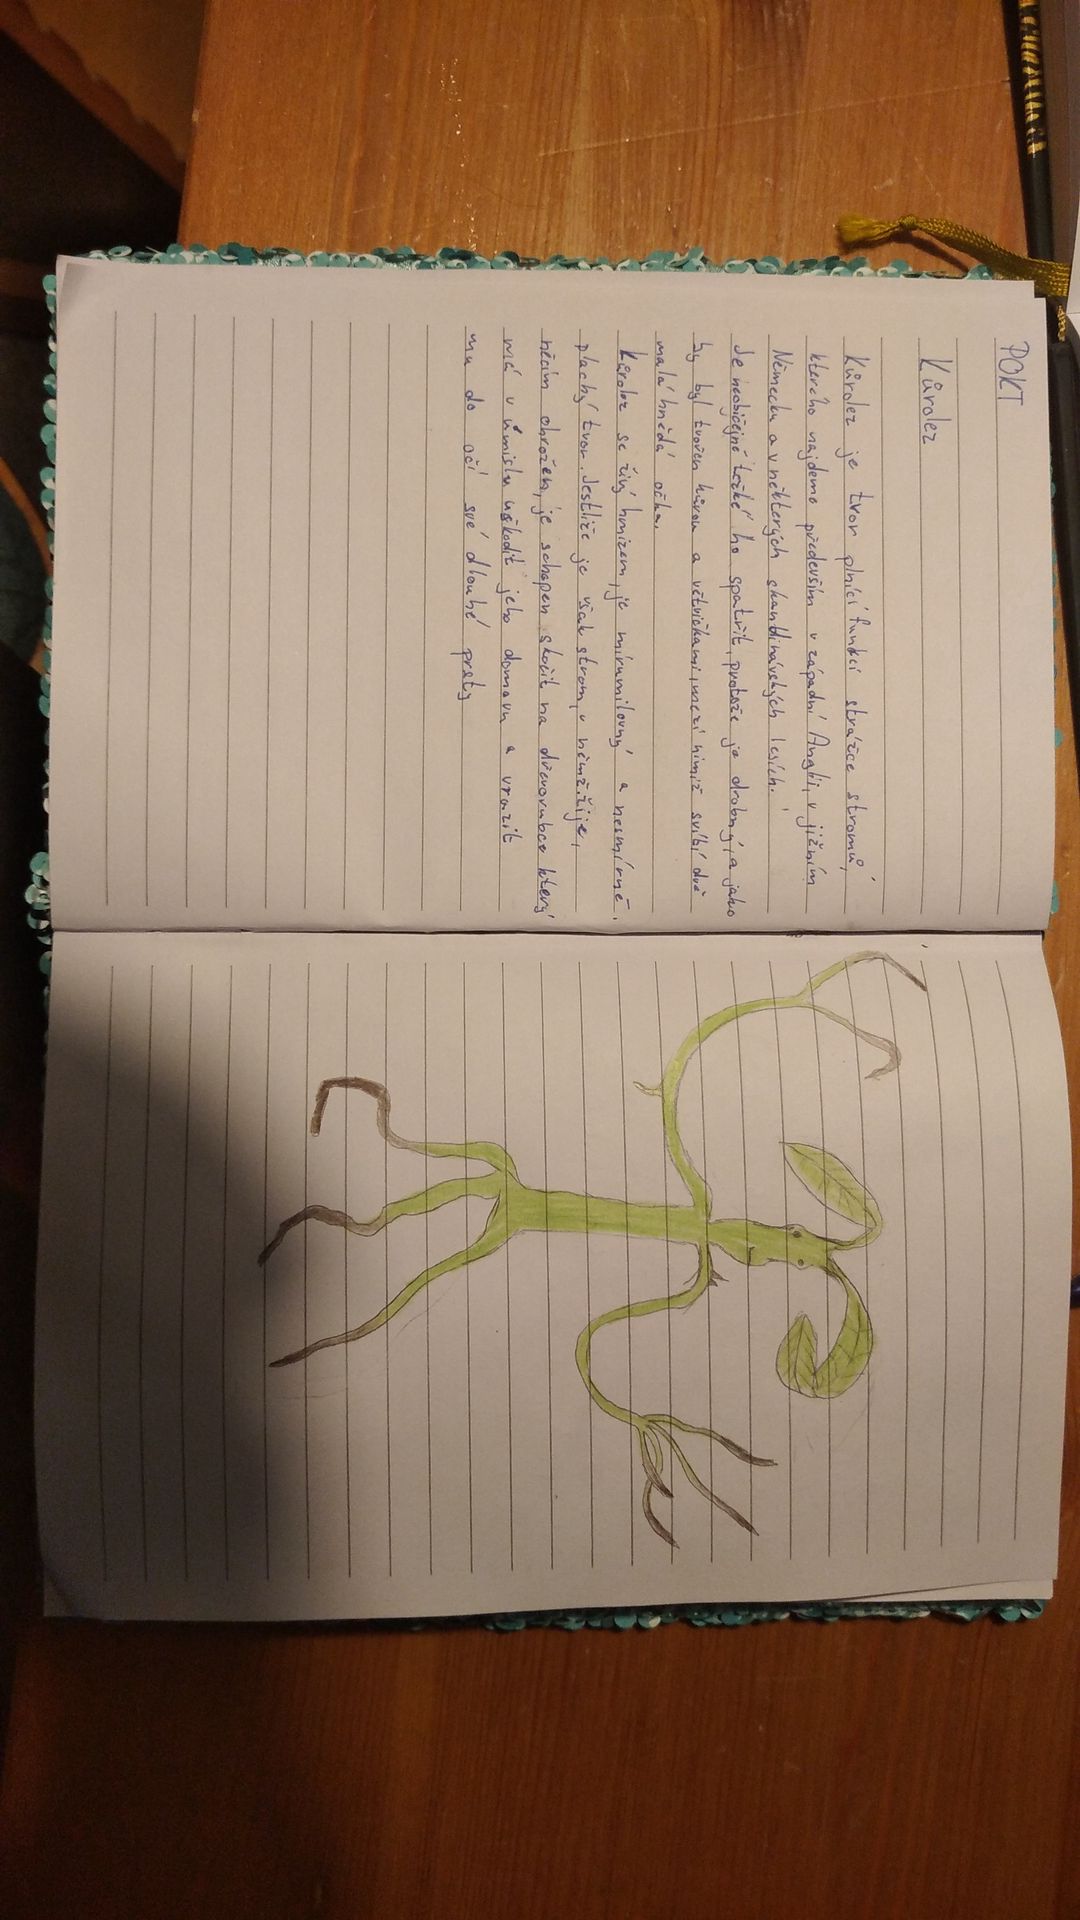 POKT
Kůrolez
Kůrolez je tvor plnící funkci strážce stromů,
kterého najdeme především v západní Anglii, v jižním
Německu a v některých skandinávských lesích.
Je neobičejně težké ho spatřit, protože je drobný, a jako
by byl tvořen kůrou a větvičkami, mezi nimiž svíbí dvě
malá hnědá očka.
Kůrolez se živý hmizem, je mírumilovný a nesmírně
plachý tvor. Jestliže je však strom, v němž žije,
něcím ohrožen, je schopen skočit na dřevorubce který
má v úmislu uškodit jeho domovu a vrazit
mu do očí své dlouhé prsty